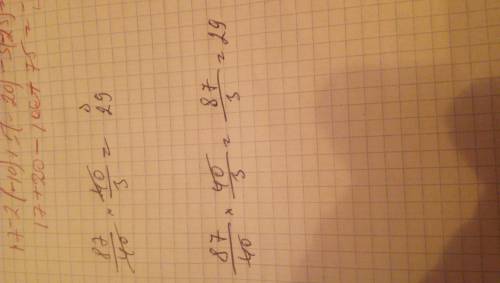 17-2(-10)+5(-20)-3(25)=
17+20-100+75=
87/40 × 40/3 = 29
87/40 × 40/3 = 87/3 = 29